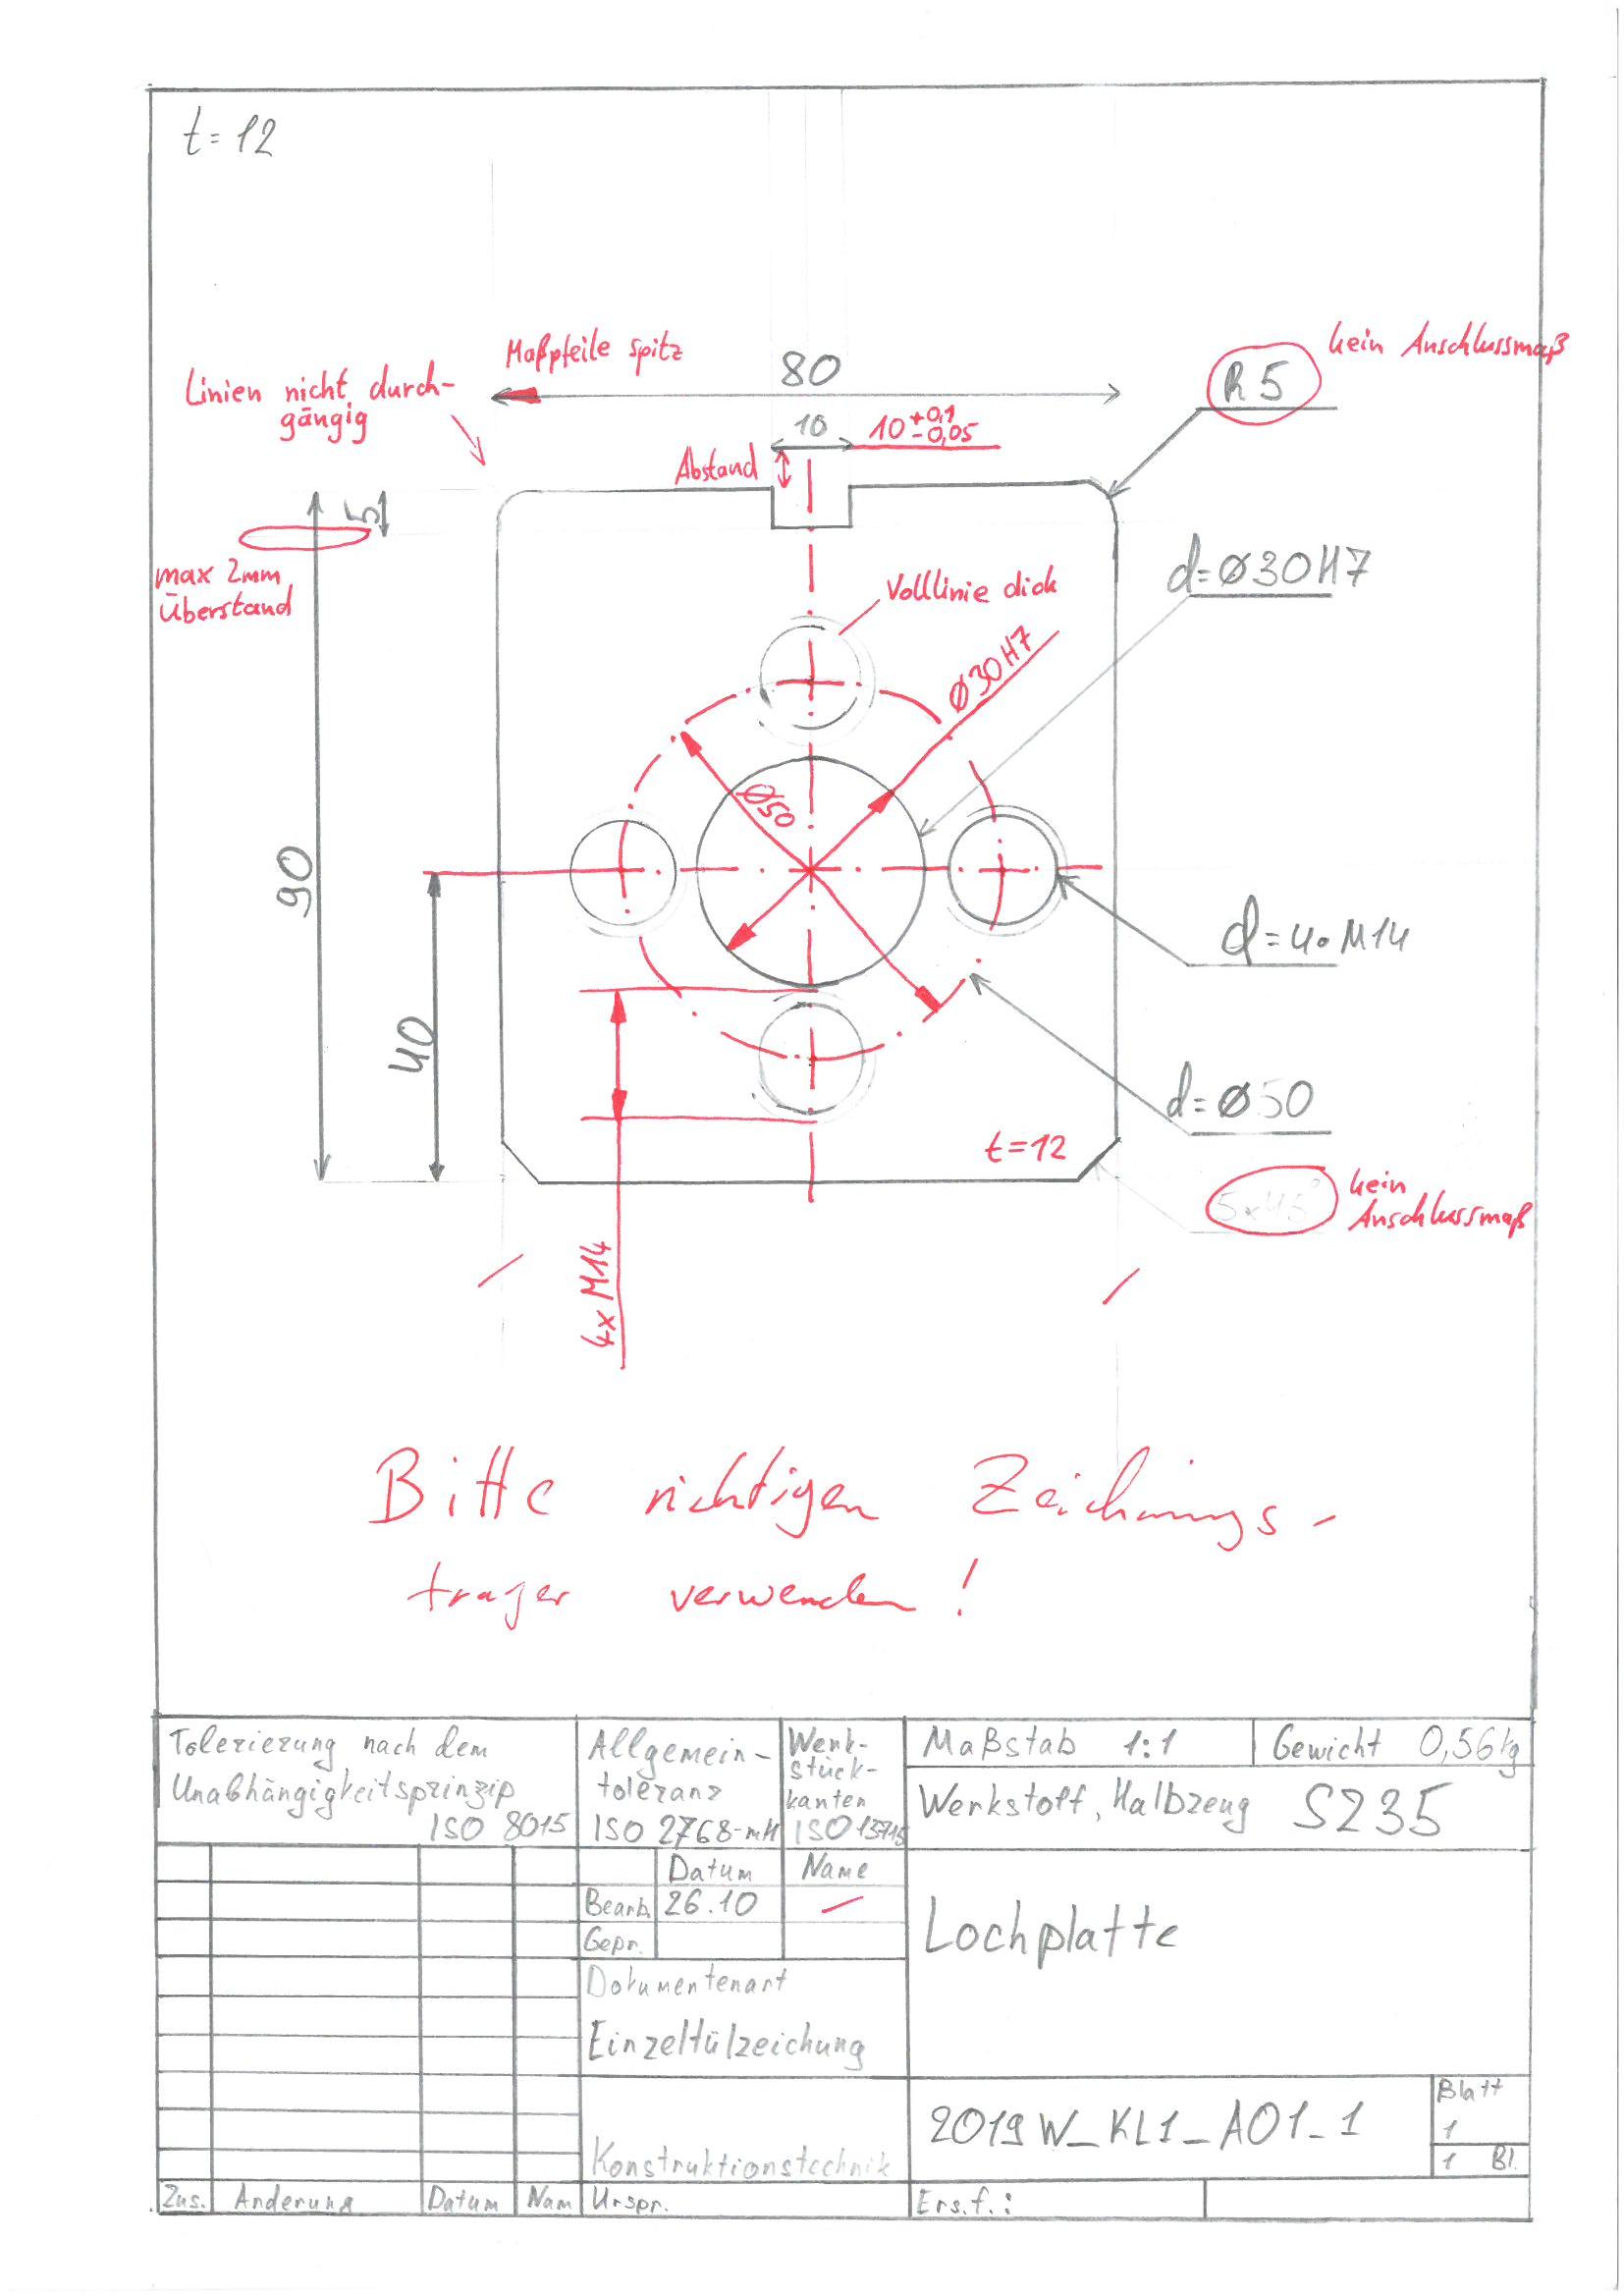 t=12
Maßpfeile spitz
80
R 5
kein Anschlussmaß
Linien nicht durch-
gängig
10
10 +0,1 -0,05
Abstand
5
max 2mm
Überstand
d=Ø30H7
Volllinie dick
Ø30H7
Ø50
90
40
d=4·M14
d=Ø50
t=12
5x45°
kein
Anschlussmaß
4x M14
Bitte richtigen Zeichnungs-
träger verwenden!
Tolerierung nach dem
Unabhängigkeitsprinzip
ISO 8015
Allgemein-
toleranz
ISO 2768-mH
Werk-
stück-
kanten
ISO 13715
Maßstab 1:1
Gewicht 0,56kg
Werkstoff, Halbzeug S235
Datum Name
Bearb. 26.10
Gepr.
Lochplatte
Dokumentenart
Einzeltülzeichung
Konstruktionstechnik
2019W_KL1_A01_1
Blatt
1
1 Bl.
Zus. Änderung Datum Nam Urspr. Ers.f.: